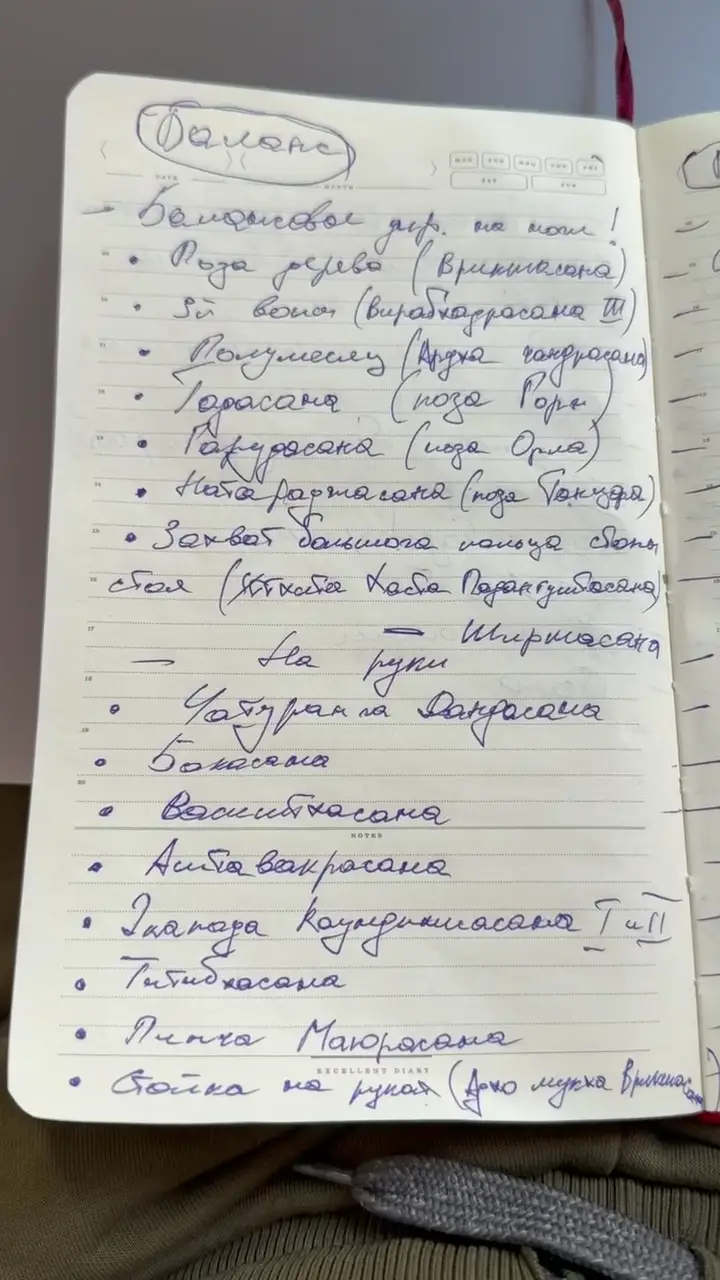 Баланс
MONTH
– Балансовое упр. на ноги!
• Поза дерева (Врикшасана)
• 3й воин (Вирабхадрасана III)
• Полумесяц (Ардха чандрасана)
• Тадасана (поза Горы)
• Гарудасана (поза Орла)
• Натараджасана (поза Танцора)
• Захват большого пальца стопы
стоя (Уткита Хаста Падангуштасана)
– Ширшасана
— На руки
• Чатуранга Дандасана
• Бакасана
• Васиштхасана
NOTES
• Аштавакрасана
• Экапада Каундиниасана I и II
• Титибхасана
• Пинча Маюрасана
EXCELLENT DIARY
• Стойка на руках (Адхо мукха Врикшасана)